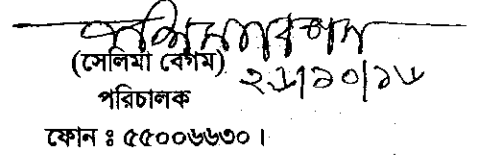 (সেলিমা বেগম)
২৬/১০/১৬
পরিচালক
ফোন ঃ ৫৫০০৬৬৩০।